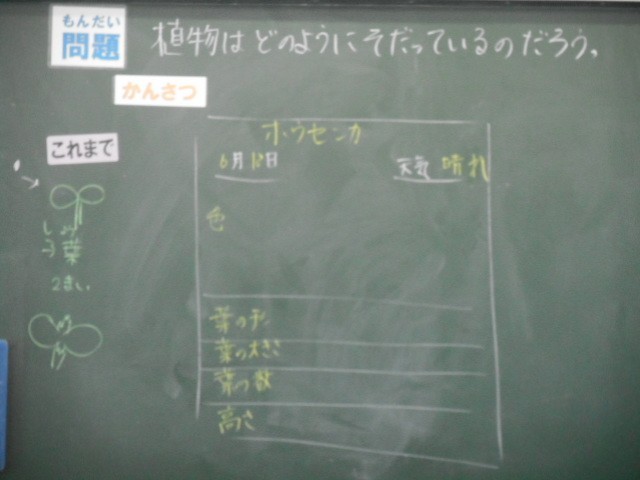 もんだい
問題
植物はどのようにそだっているのだろう。
かんさつ
これまで
子葉
2まい
ホウセンカ
6月13日
天気 晴れ
色
葉の形
葉の大きさ
葉の数
高さ